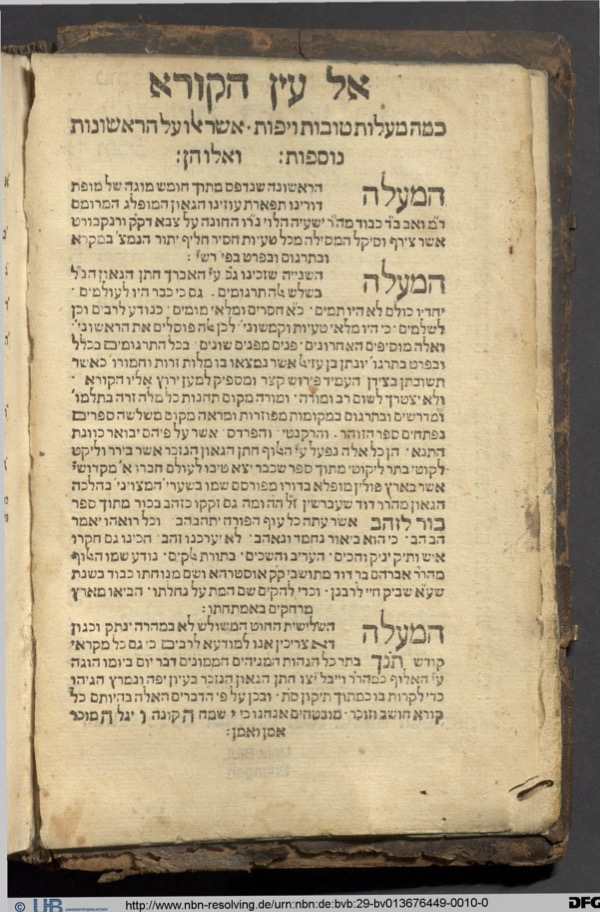 אל עין הקורא
כמה מעלות טובות ויפות אשר אלו על הראשונות
נוספות: ואלו הן:
המעלה הראשונה שנדפס מתוך חומש מוגה של מופת
דורינו תפארת עוזינו הגאון המופלג המרומם
ר״מ ואב״ד כבוד מהר״ר ישעיה הלוי נרו החונה על צבא דק״ק ורנקבורט
אשר צירף וסיקל המסילה מכל טעיות חסיר חליף יתור הנמצ׳ במקרא
ובתרגום ובפרט בפי׳ רש״י:
המעלה השנייה שזכינו גכ ע״י האברך חתן הגאון הנ״ל
בשלש אלה התרגומים. גם כי כבר היו לעולמים ׳
יחדיו כולם לא היו תמים ׳ כ״א חסרים ומלאי מומים ׳ כנודע לרבים וכן
לשלמים ׳ כי היו מלאי טעיות וקמשוני׳ לכן אלה פוסלים את הראשוני׳
ואלה מוסיפים האחרונים ׳ פנים מפנים שונים ׳ בכל התרגומים בכלל
ובפרט בתרגו׳ יונתן בן עזיאל אשר נמצאו בו מלות זרות וחמורו׳ כאשר
תשובתן בצידן העמיד פירוש קצר ומספיק למען ירוץ אליו הקורא ׳
ולא יצטרך לשום רב ומורה ׳ ומורה מקום תחנות כל מלה זרה בתלמו׳
ומדרשים ובתרגום במקומות מפוזרות ומראה מקום משלשה ספרים
נפתחים ספר הזוהר. והרקנטי ׳ והפרדס ׳ אשר על פיהם יבואר כוונת
התנא ׳ הן כל אלה נפעל ע״י האלוף חתן הגאון הנזכר אשר בירר וליקט
לקוטי בתר ליקוטי מתוך ספר שכבר יצא טיבו לעולם חברו א׳ מקדושי׳
אשר בארץ פולין מופלא בדורו מפורסם שמו בשערי׳ המצויני׳ בהלכה
הגאון מהר״ר דוד שעברשין ז״ל ההומה גם זקקו כזהב בכור מתוך ספר
בור לזהב אשר עתה כל עוף הפורח יתהבהב ׳ וכל רואהו יאמר
הב הב ׳ כי הוא ביאור נחמד ונאהב ׳ לא יערכנו זהב ׳ הכינו גם חקרו
איש ותיק יניק וחכים ׳ העריב והשכים ׳ בתורת אלקים ׳ נודע שמו האלוף
מהר״ר אברהם בר דוד מתושבי ק״ק אוסטרהא ושם מנוחתו כבוד בשנת
שע״א שביק חיי לרבנן ׳ וכדי להקים שם המת על נחלתו ׳ הביאו מארץ
מרחקים באמתחתו:
המעלה השלישית החוט המשולש לא במהרה ינתק וכגון
דא צריכין אנו למודעא לרבים כי גם כל מקראי
קודש תנ״ך בתר כל הגהות המגיהים הממונים דבר יום ביומו הוגה
ע״י האלוף כמהר״ר וייבל יצ״ו חתן הגאון הנזכר בעיון יפה ונמרץ הגיהו
כדי לקרות בו כמתוך תיקון ס״ת ׳ ובכן על פי הדברים האלה בהיותם כל
קורא חושב וזוכר ׳ מובטחים אנחנו כי ישמח הקונה ויגל המוכר
אמן ואמן:
© UB
http://www.nbn-resolving.de/urn:nbn:de:bvb:29-bv013676449-0010-0
DFG